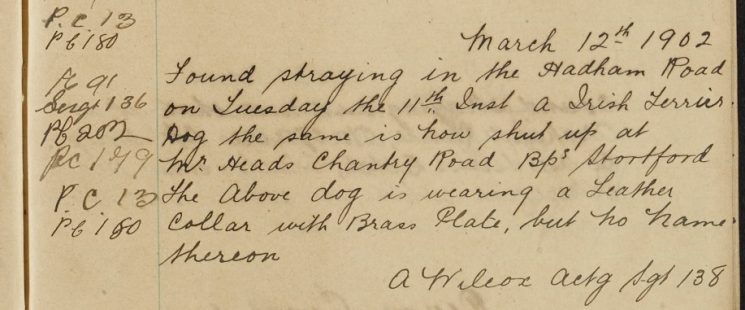 P.C 13
PC 180
March 12th 1902
PC 91
Sergt 136
PC 202
PC 179
P.C. 13
PC 180
Found straying in the Hadham Road
on Tuesday the 11th Inst a Irish Terrier
Dog the same is now shut up at
Mr Heads Chantry Road Bps Stortford
The Above dog is wearing a Leather
Collar with Brass Plate, but no name
thereon
A Wilcox Actg Sgt 138